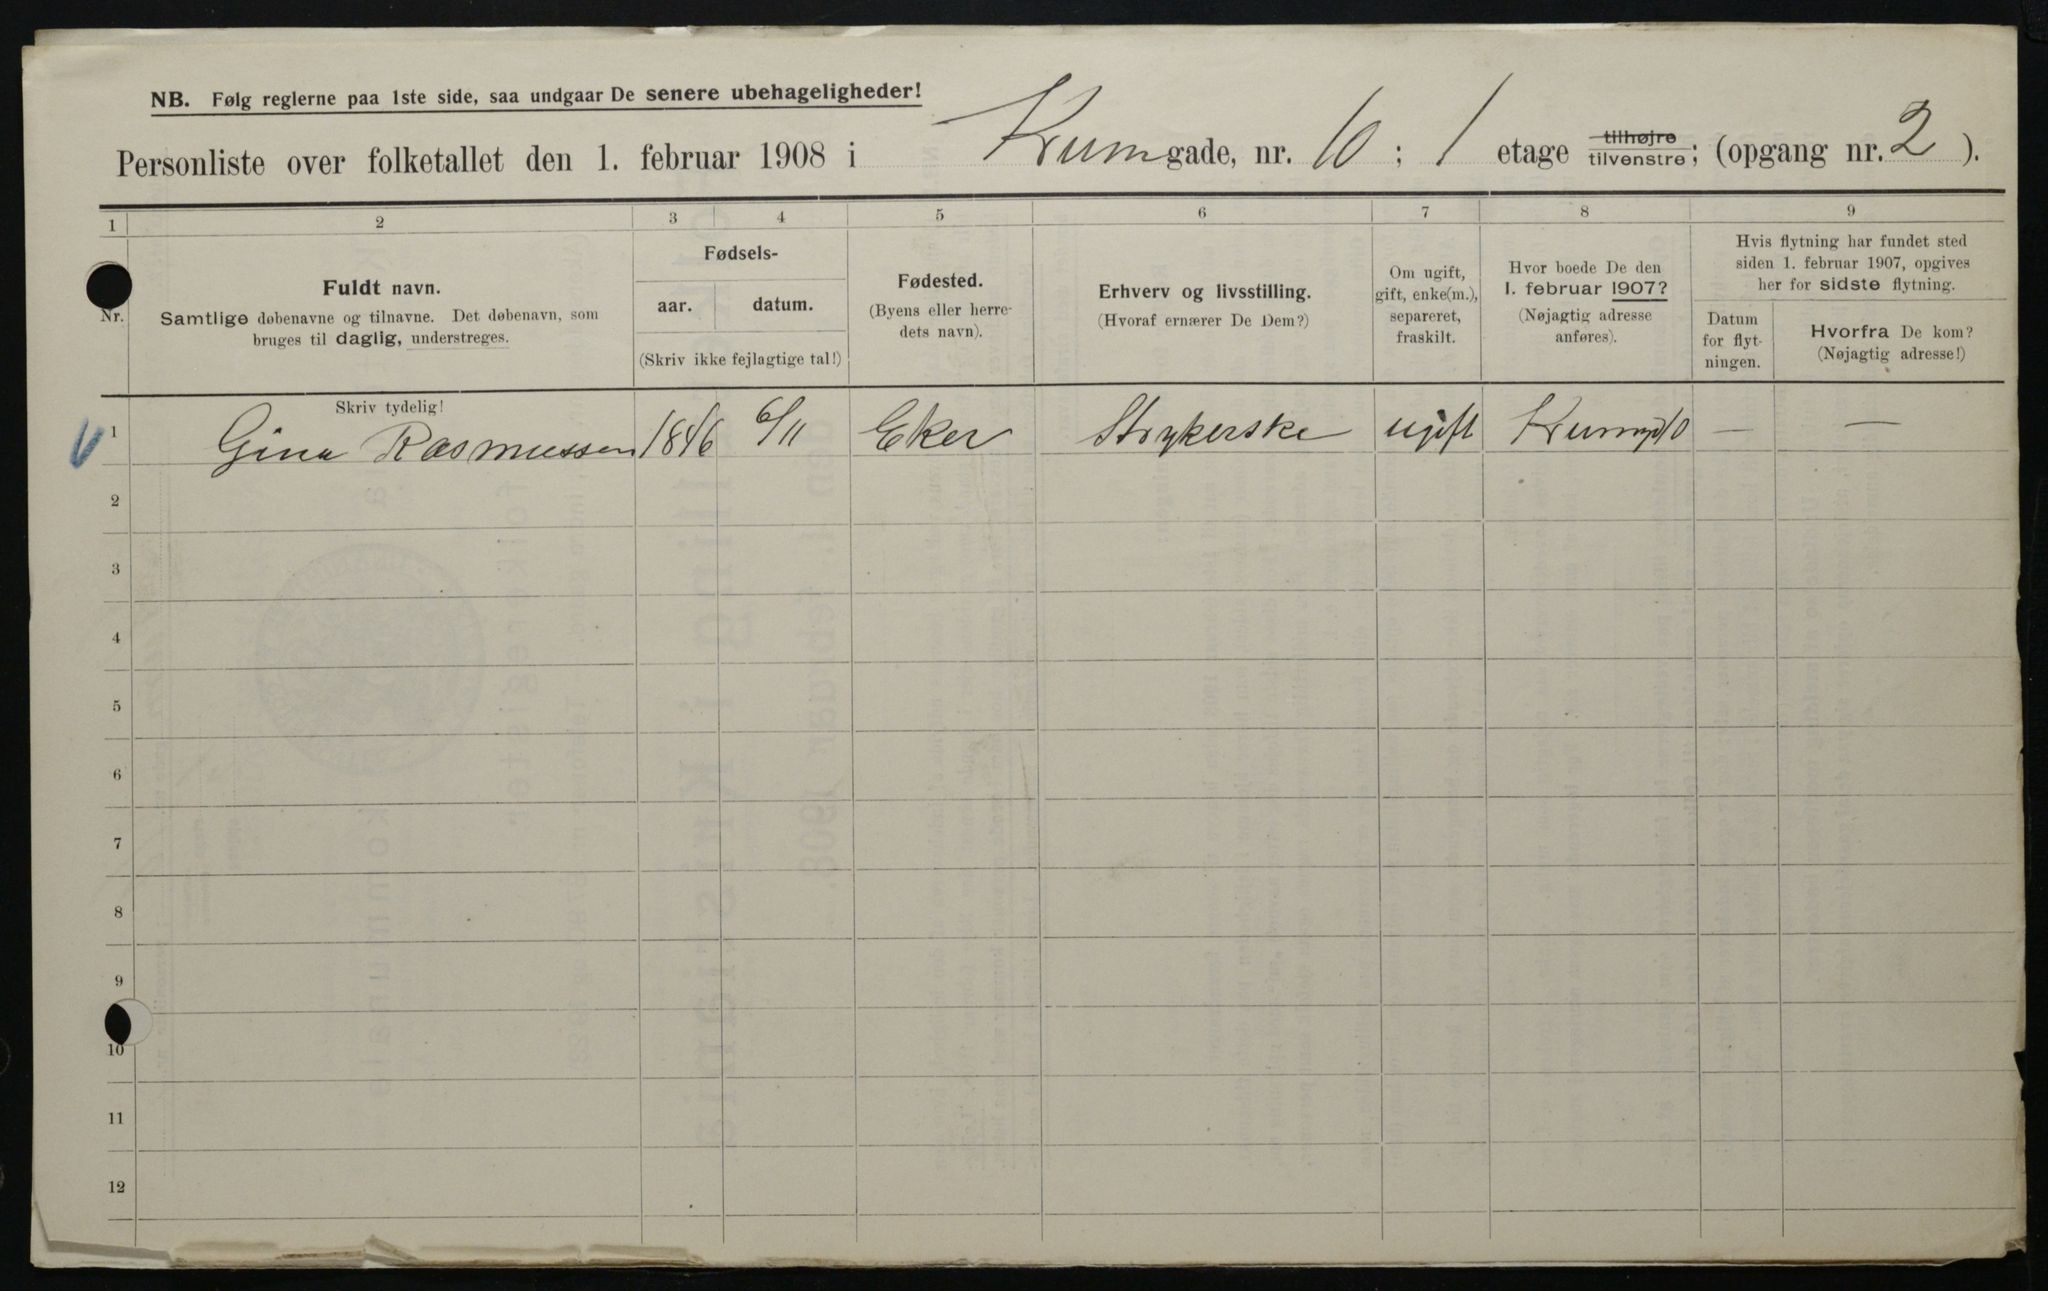 NB. Følg reglerne paa 1ste side, saa undgaar De senere ubehageligheder!
Personliste over folketallet den 1. februar 1908 i Krumgade, nr. 10; 1 etage tilhøjre tilvenstre; (opgang nr. 2).
1 2 3 4 5 6 7 8 9
Nr.
Fuldt navn.
Samtlige døbenavne og tilnavne. Det døbenavn, som
bruges til daglig, understreges.
Fødsels-
aar. datum.
(Skriv ikke fejlagtige tal!)
Fødested.
(Byens eller herre-
dets navn).
Erhverv og livsstilling.
(Hvoraf ernærer De Dem?)
Om ugift,
gift, enke(m.),
separeret,
fraskilt.
Hvor boede De den
1. februar 1907?
(Nøjagtig adresse
anføres).
Hvis flytning har fundet sted
siden 1. februar 1907, opgives
her for sidste flytning.
Datum
for flyt-
ningen.
Hvorfra De kom?
(Nøjagtig adresse!)
Skriv tydelig!
1 Gina Rasmussen 1846 6/11 Eker Strykerske ugift Krumgd 10 — —
2
3
4
5
6
7
8
9
10
11
12